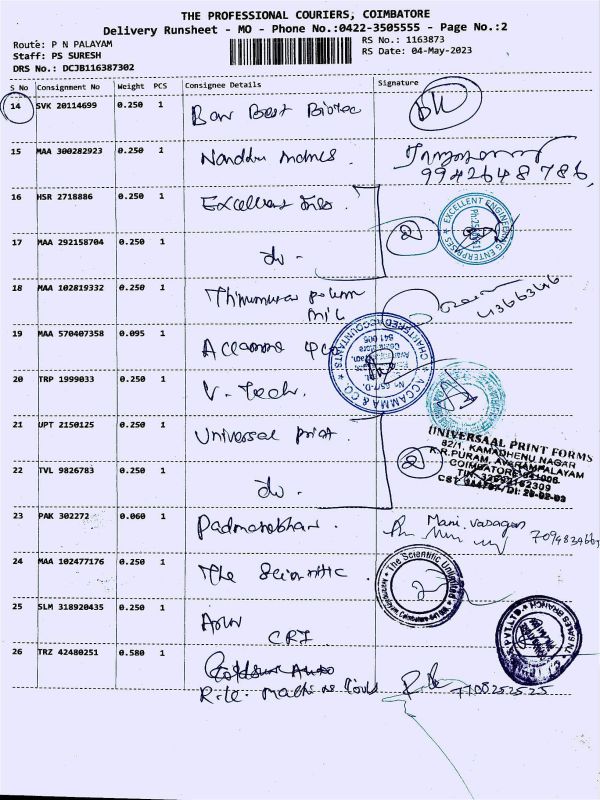 THE PROFESSIONAL COURIERS, COIMBATORE
Delivery Runsheet - MO - Phone No.:0422-3505555 - Page No.:2
Route: P N PALAYAM
Staff: PS SURESH
DRS No.: DCJB116387302
RS No.: 1163873
RS Date: 04-May-2023
S No Consignment No Weight PCS Consignee Details Signature
14 SVK 20114699 0.250 1
15 MAA 300282923 0.250 1 Nandhu
9942648786,
16 HSR 2718886 0.250 1 Excellent
EXCELLENT ENGINEERING ENTERPRISES
17 MAA 292158704 0.250 1 do - 2
18 MAA 102819332 0.250 1
19 MAA 570407358 0.095 1 Accamma & Co
ACCAMMA & CO. CHARTERED ACCOUNTANTS
20 TRP 1999033 0.250 1 V. Tech.
21 UPT 2150125 0.250 1 Universal Print
UNIVERSAAL PRINT FORMS
82/1, KAMADHENU NAGAR
K.R.PURAM, AVARAMPALAYAM
COIMBATORE-641006.
22 TVL 9826783 0.250 1 do - 2
23 PAK 302272 0.060 1 Padmanabhan. Mani vasagan
24 MAA 102477176 0.250 1 The Scientific
The Scientific Unlimited
25 SLM 318920435 0.250 1 Arun
CRI
26 TRZ 42480251 0.580 1
R.K. R.K
7708252525